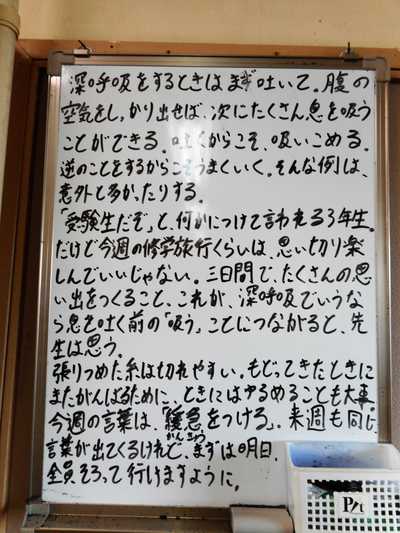 深呼吸をするときはまず吐いて。腹の
空気をしっかり出せば、次にたくさん息を吸う
ことができる。吐くからこそ、吸いこめる。
逆のことをするからこそうまくいく。そんな例は、
意外と多かったりする。
「受験生だぞ」と、何かにつけて言われる3年生。
だけど今週の修学旅行くらいは、思い切り楽
しんでいいじゃない。三日間で、たくさんの思
い出をつくること、これが、深呼吸でいうな
ら息を吐く前の「吸う」ことにつながると、先
生は思う。
張りつめた糸は切れやすい。もどってきたときに
またがんばるために、ときにはゆるめることも大事。
今週の言葉は、「緩急をつける」。来週も同じ
かんきゅう
言葉が出てくるけれど、まずは明日、
全員そろって行けますように。